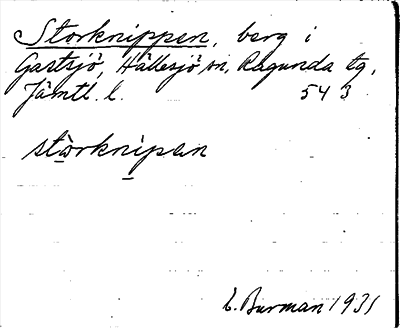 Storknippen, berg i
Gastsjö, Hällesjö sn, Ragunda tg,
Jämtl. l. 54 3
storknipan
E. Burman 1931